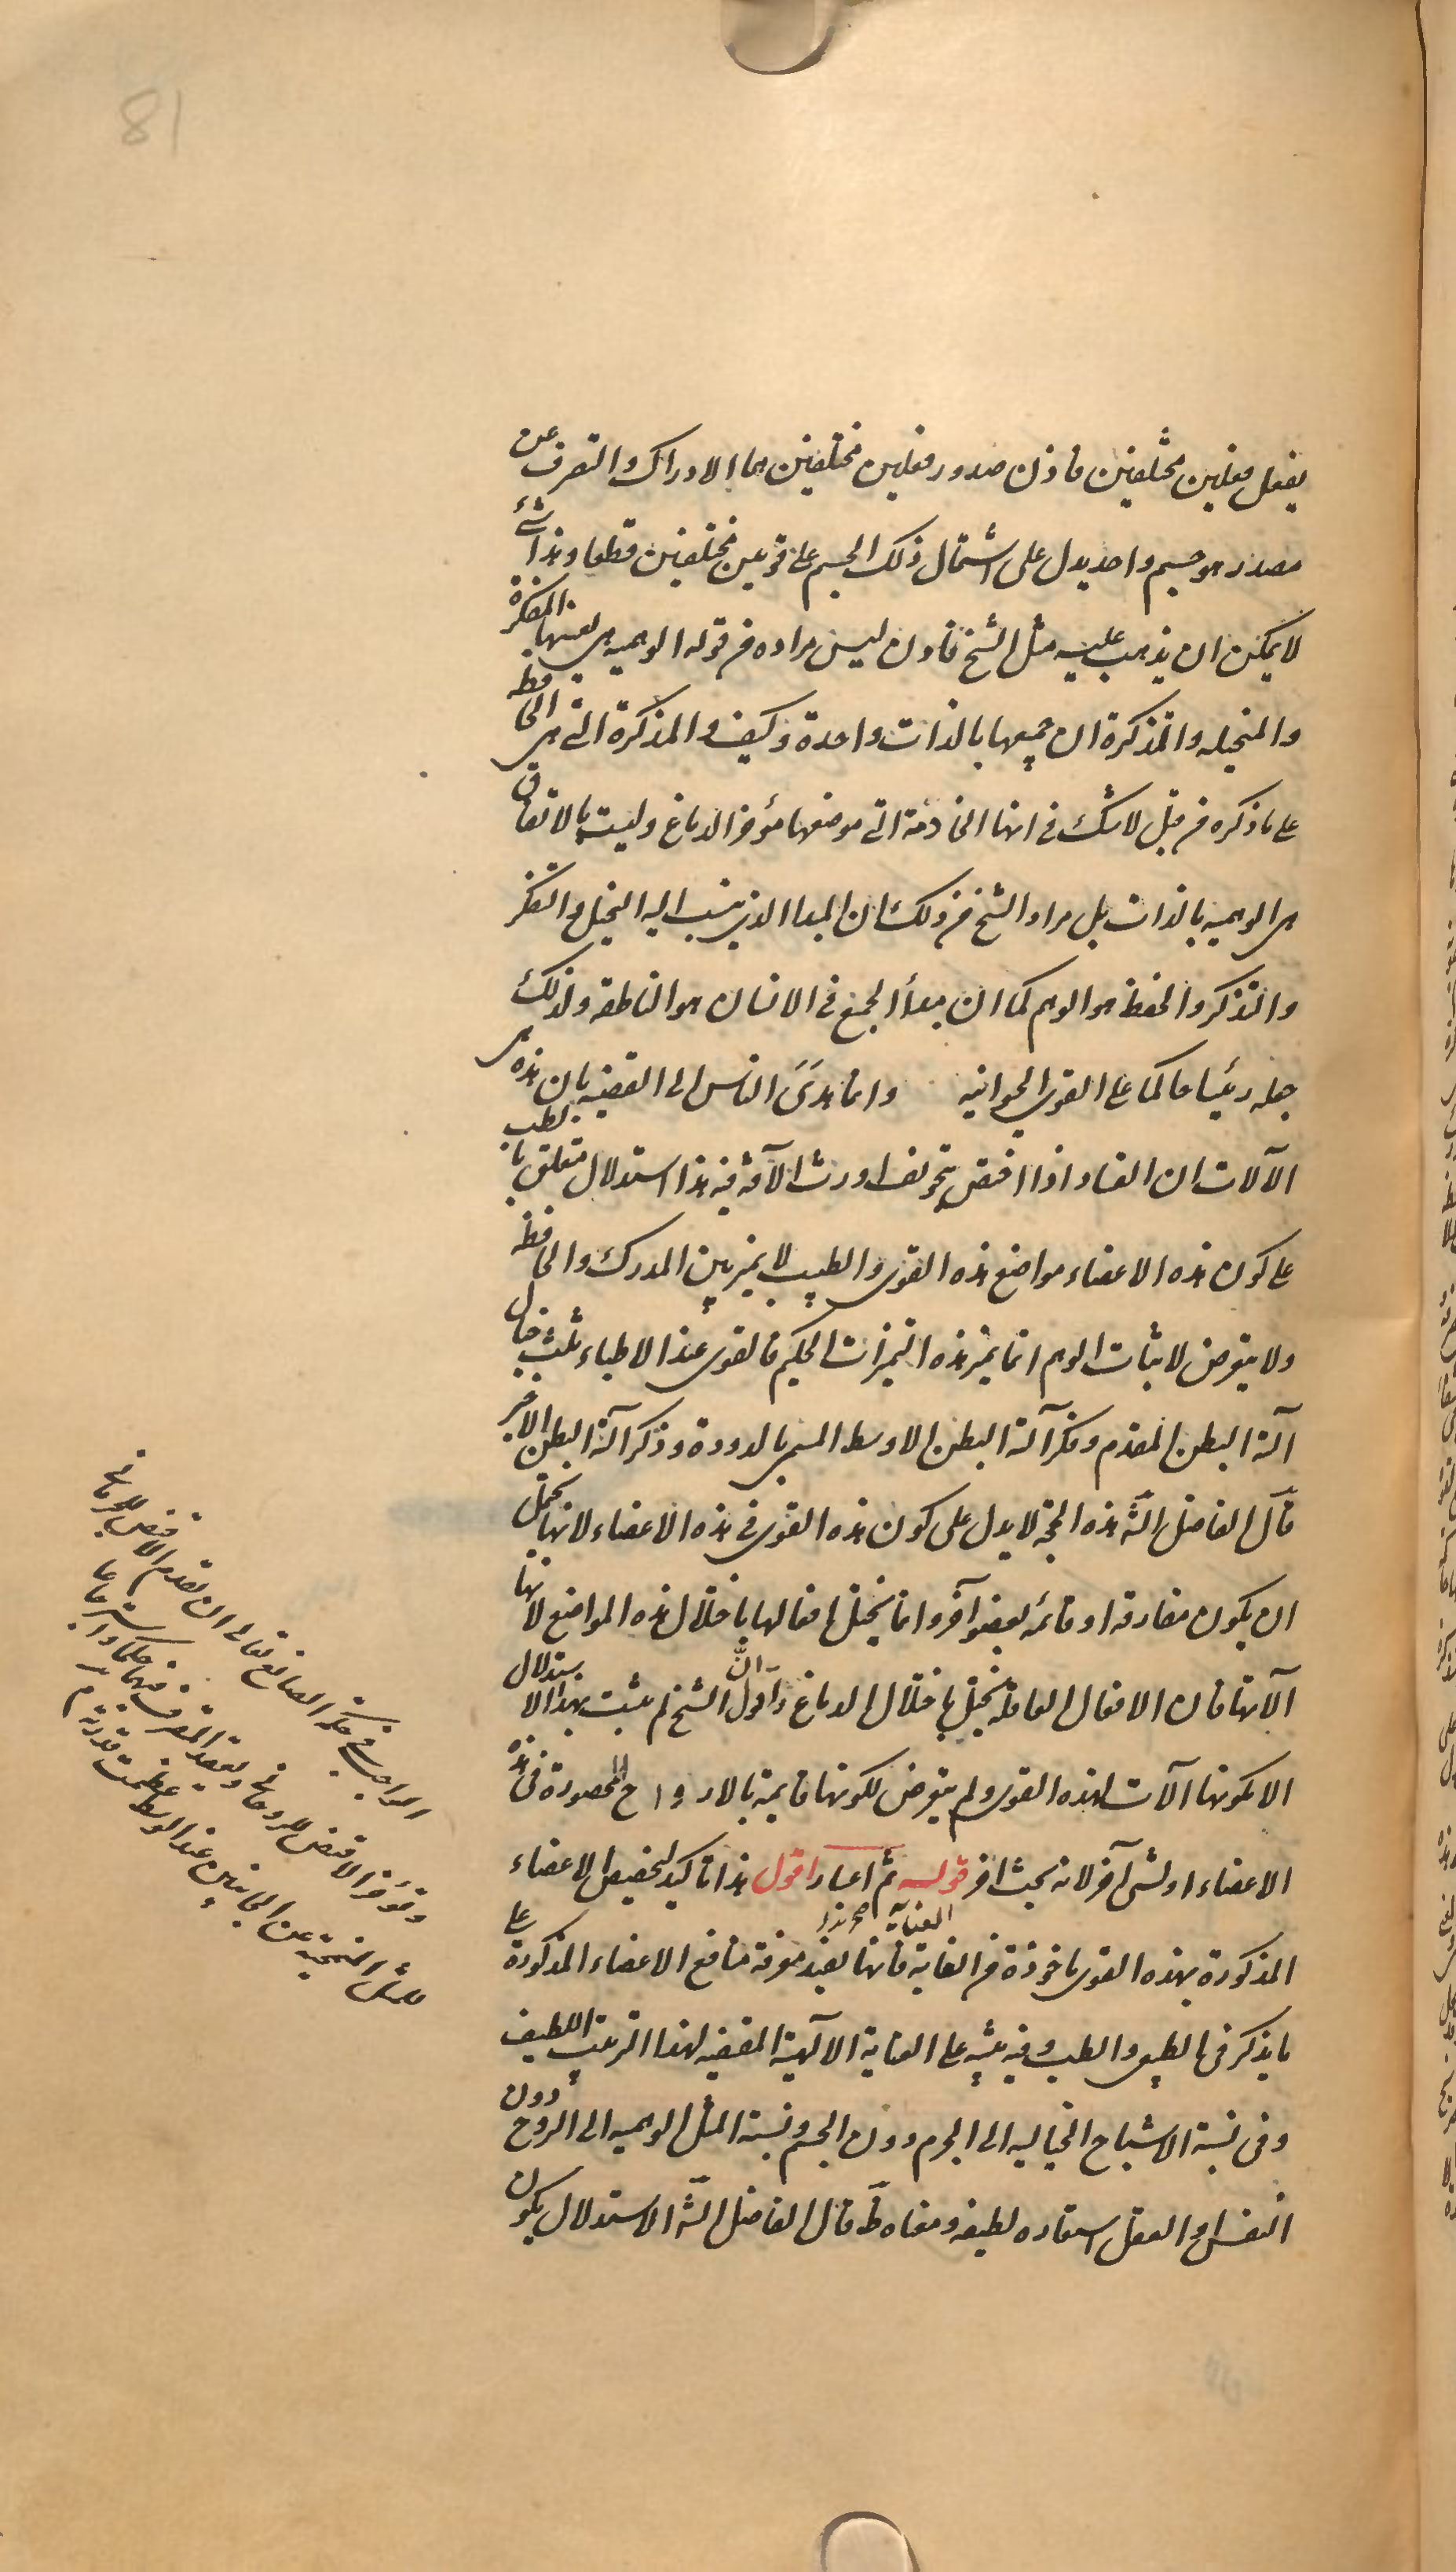 81
يفعل فعلين مختلفين فاذن صدور فعلين مختلفين هما الادراك والتصرف عن
مصدر هو جسم واحد يدل على اشتمال ذلك الجسم على قوتين مختلفتين قطعا وهذا شئ
لا يمكن ان يذهب عليه مثل الشيخ فاذن ليس مراده من قوله الوهمية هى بعينها المفكرة
والمتخيله والمتذكرة ان جميعها بالذات واحدة وكيف والمذكرة التى هى الحافظه
على ما ذكره من قبل لا شك فى انها الخادمة التى موضعها مؤخر الدماغ وليست بالاتفاق
هى الوهميه بالذات بل مراد الشيخ من ذلك ان المبدا الذى ينسب اليه التخيل والتفكر
والتذكر والحفظ هو الوهم كما ان مبدأ الجميع فى الانسان هو الناطقه ولذلك
جعله رئيسا حاكما على القوى الحيوانيه وانما هدى الناس الى القضية بان هذه هى
الآلات ان الفساد اذا اختص بتجويف اورث الآفة فيه هذا استدلال متعلق بالطب
على كون هذه الاعضاء مواضع هذه القوى والطبيب لا يميز بين المدرك والحافظه
ولا يتعرض لاثبات الوهم انما يميز هذه التميزات الحكيم فالقوى عند الاطباء ثلث خيال
آلته البطن المقدم وفكر آلته البطن الاوسط المسمى بالدودة وذكر آلته البطن الاخير
قال الفاضل الشه هذه الحجة لا يدل على كون هذه القوى فى هذه الاعضاء لانها تحتمل
ان يكون مفارقه او قائمه بعضو آخر وانما يختل افعالها باختلال هذه المواضع لانها
آلاتها فان الافعال العاقله تختل باختلال الدماغ واقول ان الشيخ لم يثبت بهذا الاستدلال
الا كونها آلات لهذه القوى ولم يتعرض لكونها قايمة بالارواح المحصورة فى هذه
الاعضاء او لشئ آخر لانه بحث اخر قوله ثم اعتبار اقول هذا تاكيد لتخصيص الاعضاء
المذكورة بهذه القوى ماخوذة من الغاية فانها يفيد معرفة منافع الاعضاء المذكورة على
العناية
ما يذكر فى الطبيعى والطب وفيه تنبيه على العناية الآلهية المقتضيه لهذا الترتيب اللطيف
وفى نسبة الاشباح الخياليه الى الجرم دون الجسم ونسبة المثل الوهميه الى الروح دون
النفس والعقل استعاره لطيفه ومعناه ظ قال الفاضل الشه الاستدلال بكون
الواجب فى حكمة الصانع تعالى ان يقدم الاقنص للجرمانى
ويؤخر الاقنص للروحانى ويقعد المتصرف فيهما حكما واسترجاعا
للمثل المنمحية عن الجانبين عند الوسط عظمت قدرته